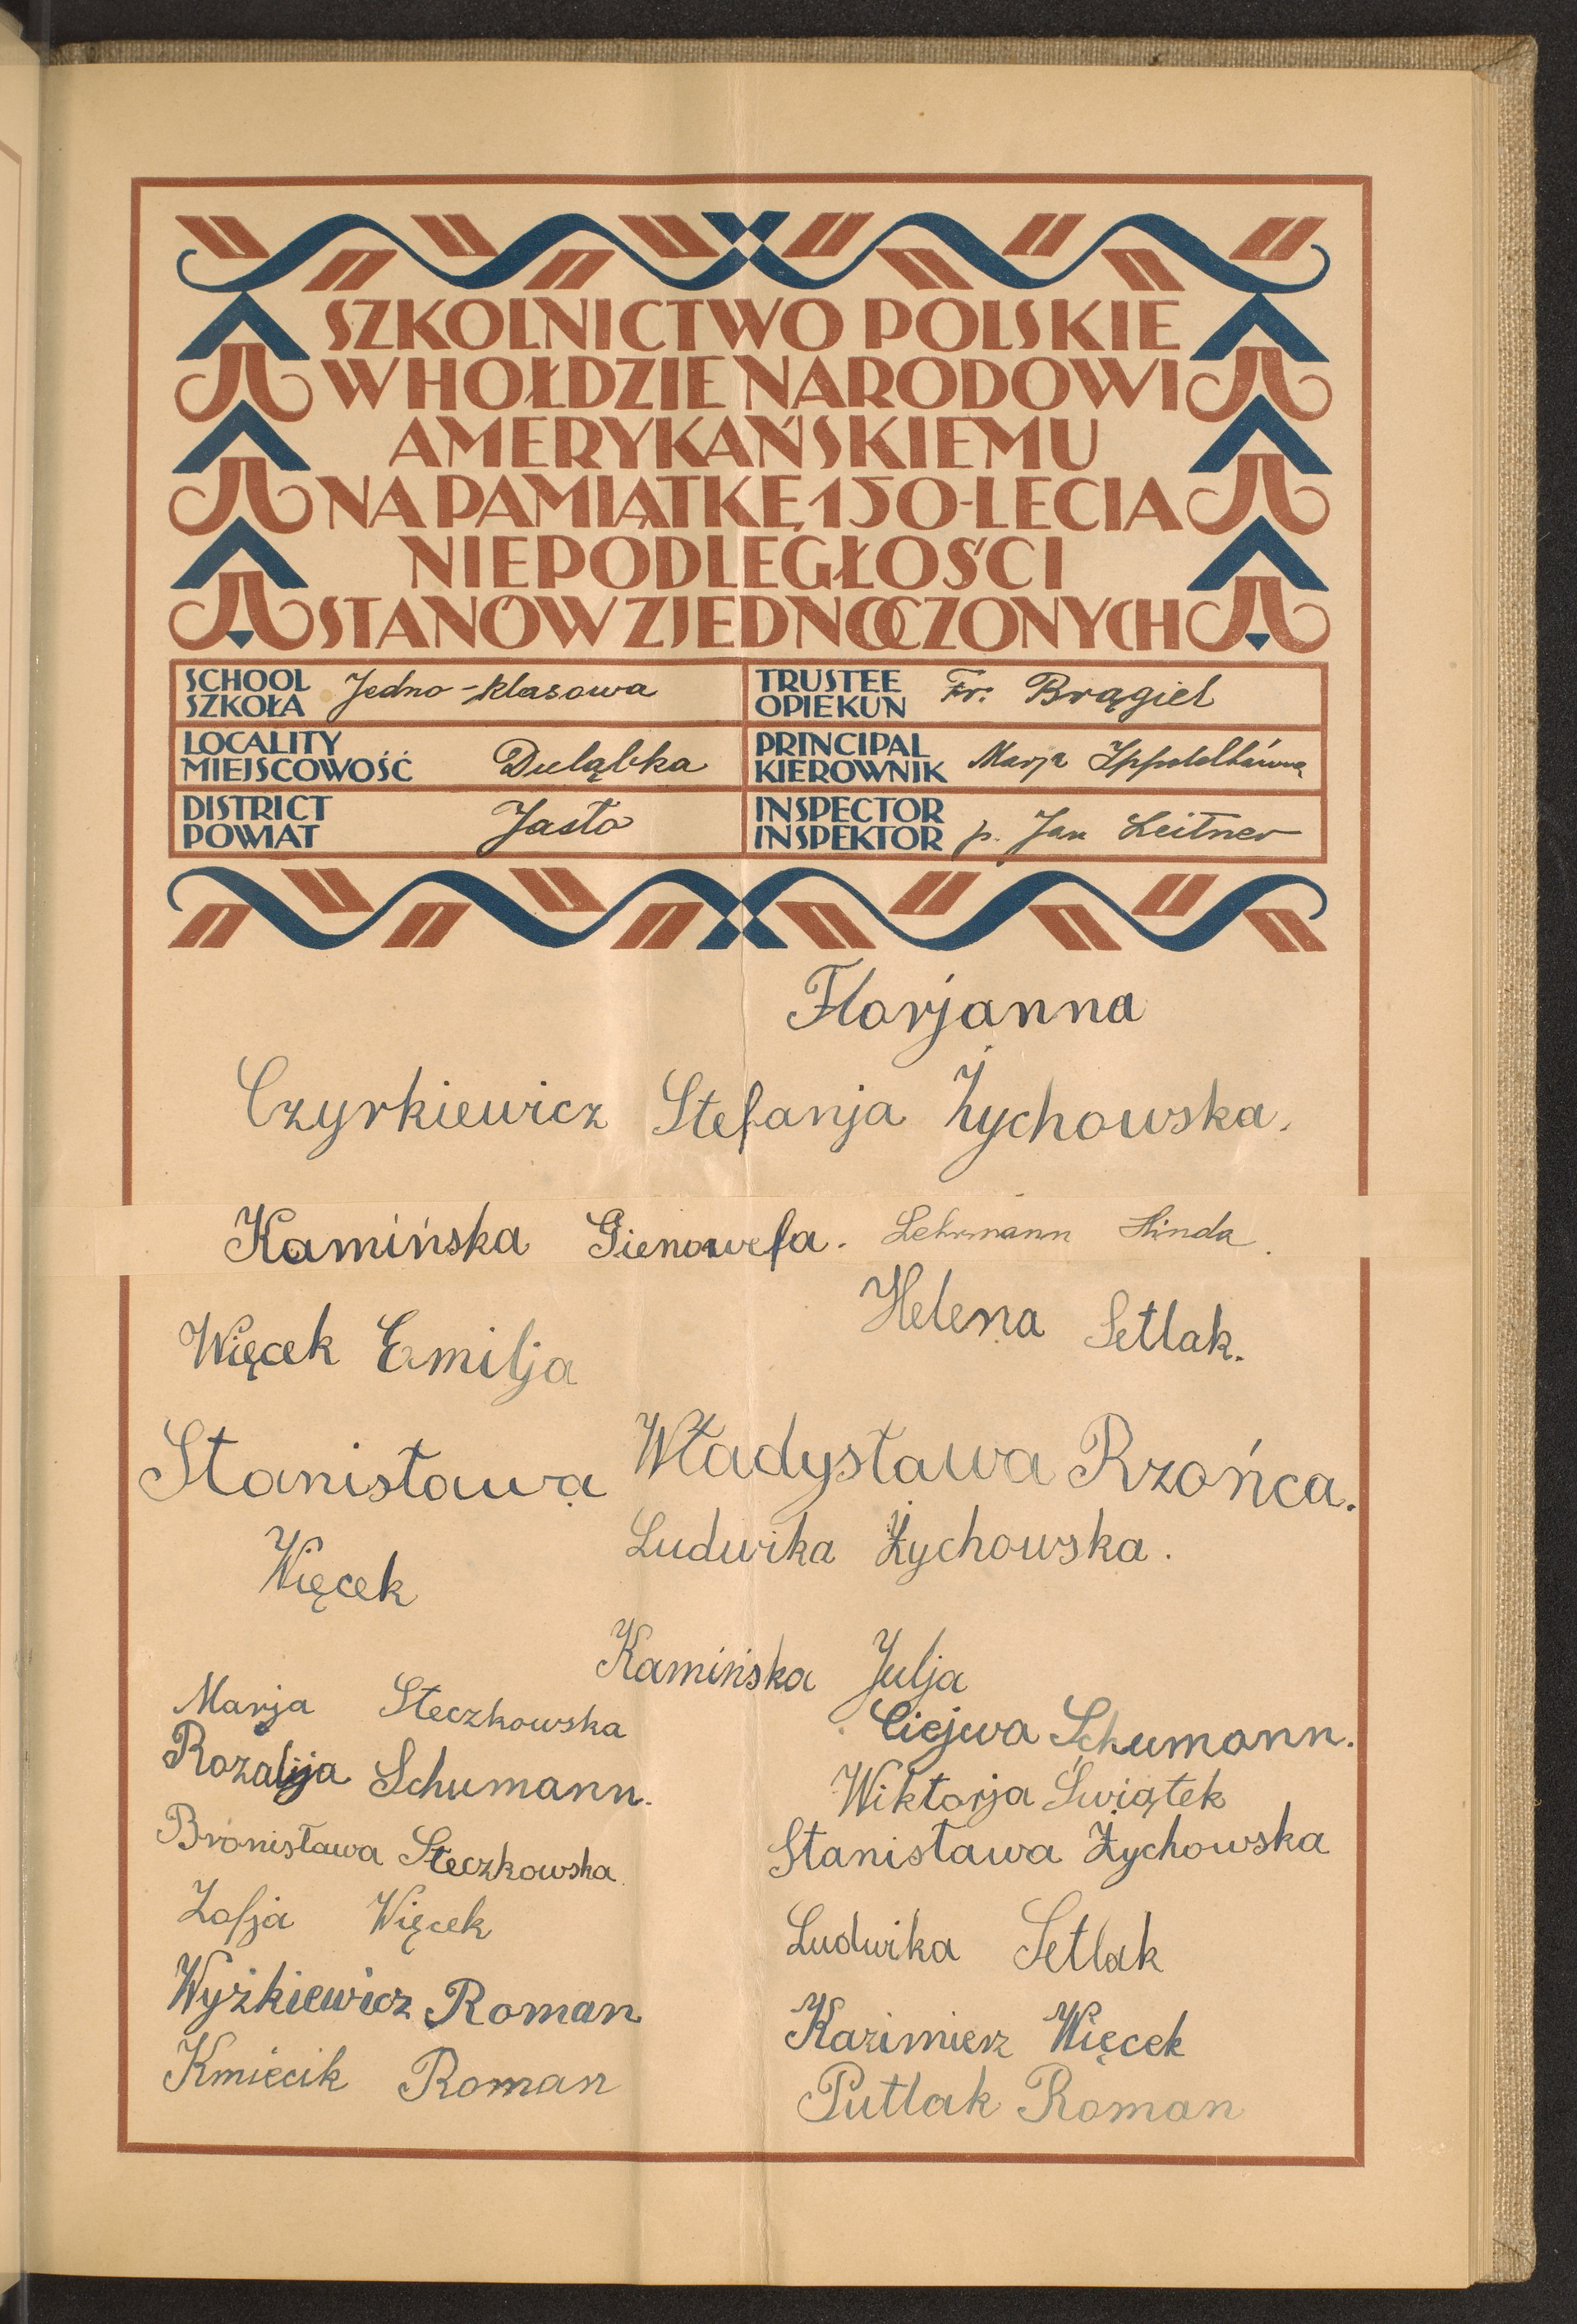 SZKOLNICTWO POLSKIE
W HOŁDZIE NARODOWI
AMERYKAŃSKIEMU
NA PAMIĄTKĘ 150-LECIA
NIEPODLEGŁOŚCI
STANÓW ZJEDNOCZONYCH
SCHOOL
SZKOŁA Jedno-klasowa
TRUSTEE
OPIEKUN Fr. Brągiel
LOCALITY
MIEJSCOWOŚĆ Duląbka
PRINCIPAL
KIEROWNIK Marja
DISTRICT
POWIAT Jasło
INSPECTOR
INSPEKTOR p. Jan Leitner
Florjanna
Czyrkiewicz Stefanja Żychowska.
Kamińska Gienowefa. Lehrmann Hinda.
Helena Setlak.
Więcek Emilja
Władysława Rzońca.
Stanisława
Ludwika Żychowska.
Więcek
Kamińska Julja
Marja Steczkowska
Ciejwa Schumann.
Rozalja Schumann.
Wiktorja Świątek
Bronisława Steczkowska.
Stanisława Żychowska
Zofja Więcek
Ludwika Setlak
Wyżkiewicz Roman
Kazimierz Więcek
Kmiecik Roman
Putlak Roman